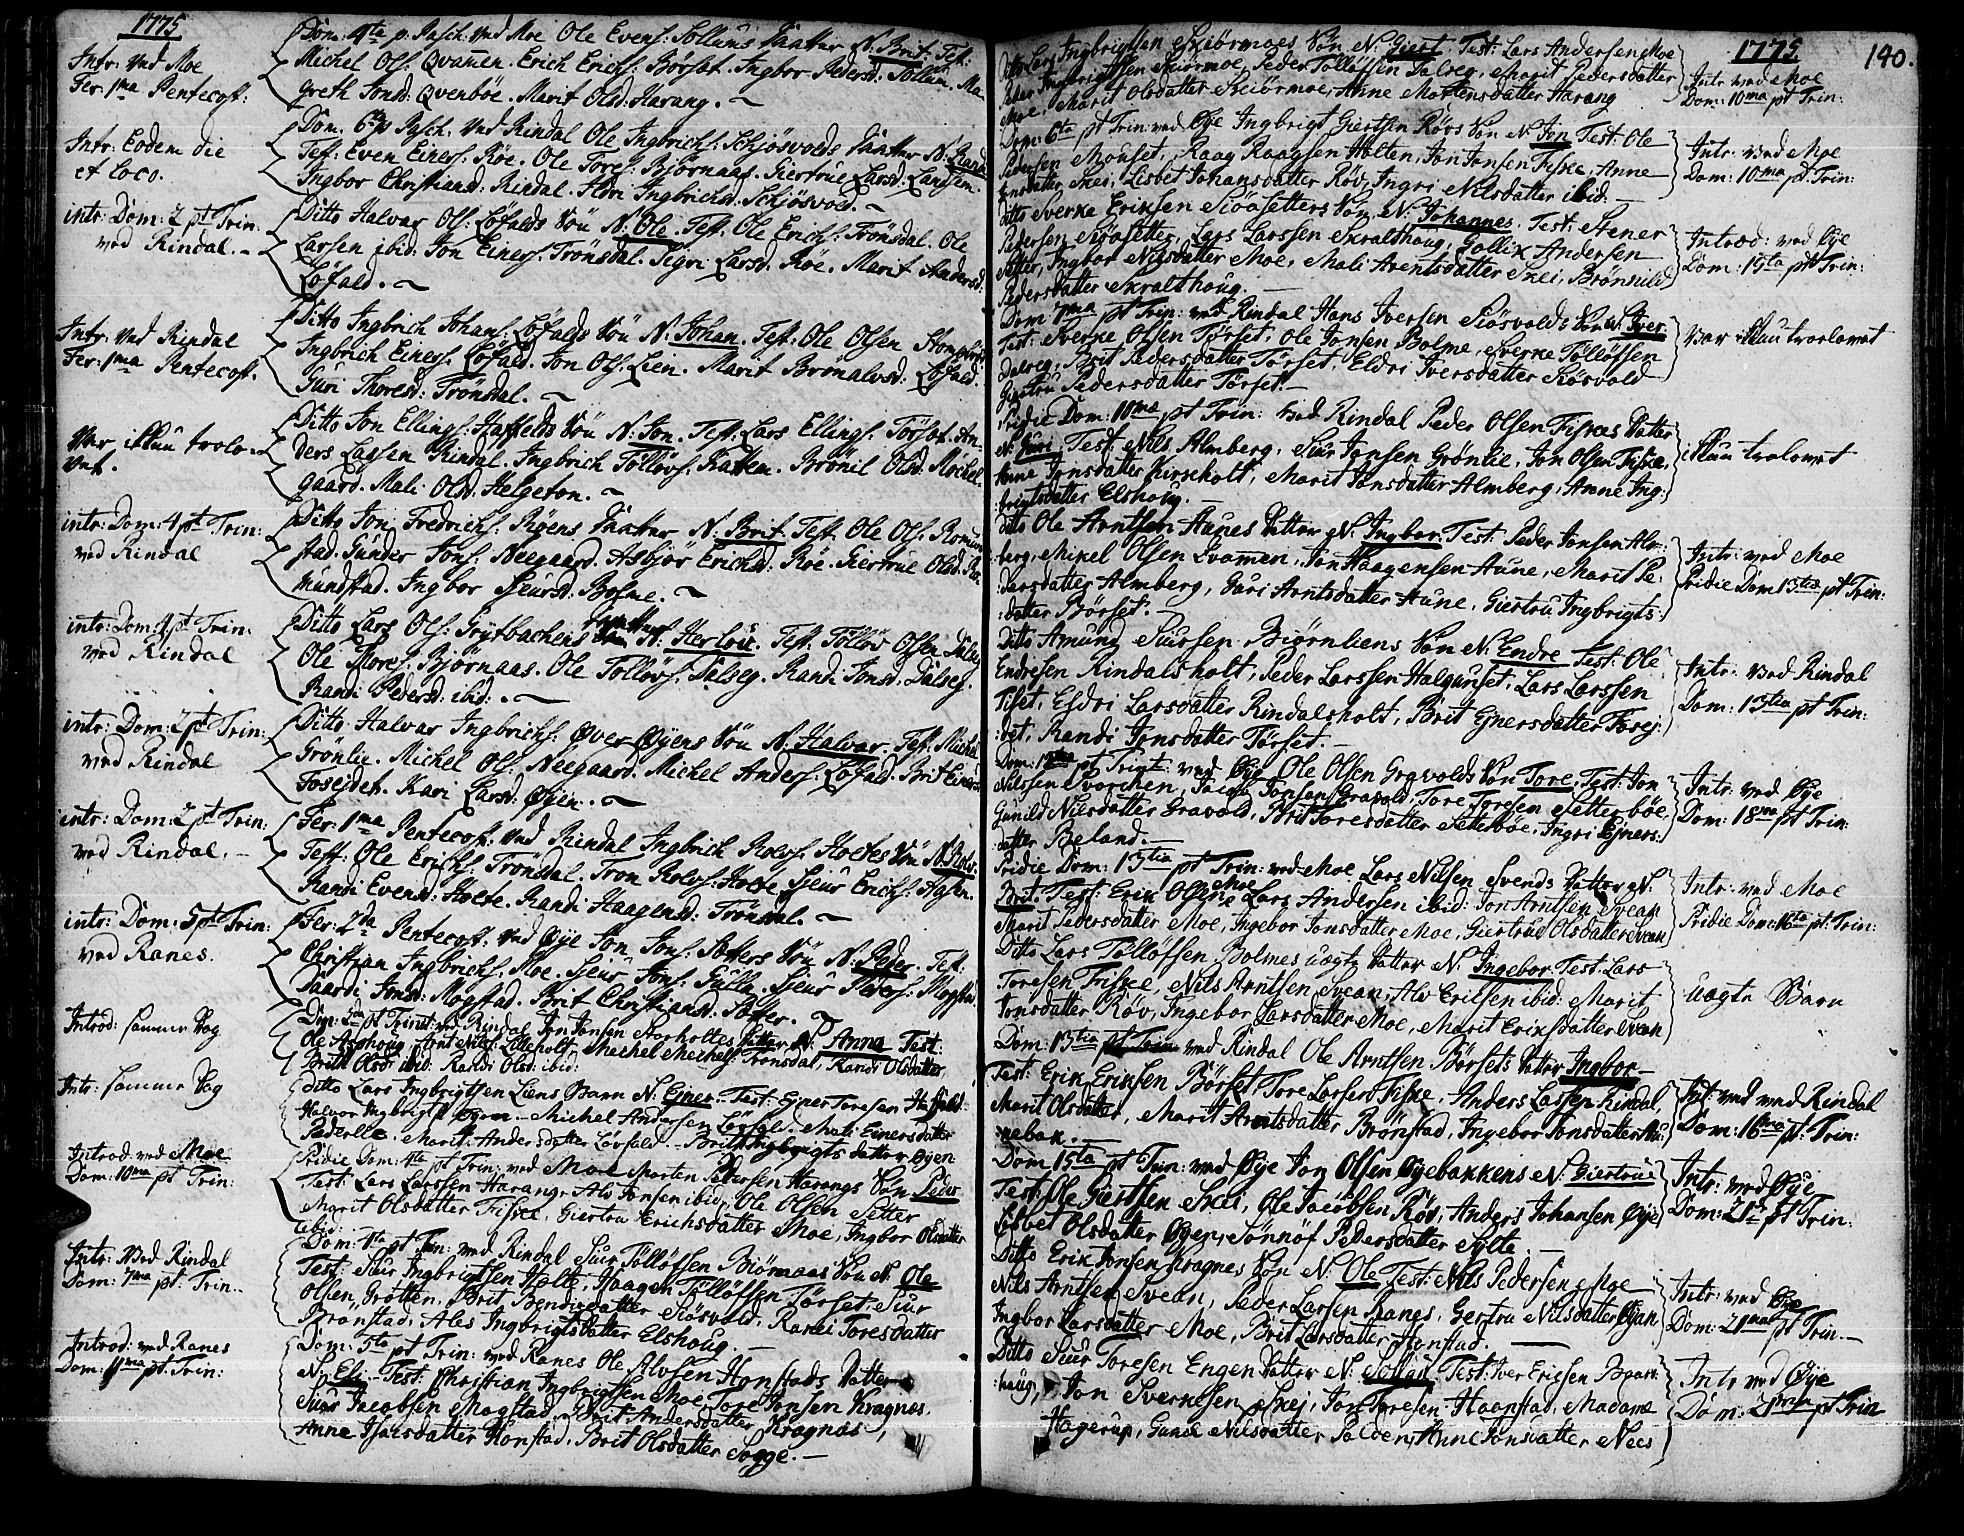 1775
Intr. ved Moe
Fer: 1ma Pentecost:
Dom: 4ta p. Pasch: ved Moe Ole Evens: Sollums Daatter N. Brit. Test:
Michel Ols: Qvamen. Erich Erichs: Børset. Ingbor Pedersd: Sollum. Ma-
greth Jonsd: Qvenbøe. Marit Olsd: Harang. ~
Intr: Eodem die
et loco.
Dom. 6ta p. Pasch: ved Rindal Ole Ingbrichs: Schjøsvolds Daatter N. Randi
Test: Even Einers: Røe. Ole Tores: Bjørnaas. Giertrue Larsd: Langsen.
Ingbor Christiansd: Rindal. Ingbrichsd: Schjøsvold. ~
intr: Dom: 2 pt Trin:
ved Rindal. -
Ditto Halvar Ols: Løfalds Søn N. Ole. Test: Ole Erichs: Trønsdal. Ole
Larsen ibid: Jon Einers: Trønsdal. Sigri Larsd. Røe. Marit Andersd:
Løfald. ~
Intr. ved Rindal
Fer: 1ma Pentecost.
Ditto Ingbrich Johans: Løfalds Søn N. Johan. Test: Ole Olsen
Ingbrich Einers: Løfald. Jon Ols. Lien. Marit Løfald:
Guri Thoresd: Trønsdal. ~
Var iklun trolo-
vet.
Ditto Jon Ellings: Hafelds Søn N. Jon. Test: Lars Ellings: Tørset. An-
ders Lassen Rindal. Ingbrich Tølløvs: Kattem. Brønil Olsd. Mochel-
gaard. Mali Olsd. Helgeton. ~
intr: Dom: 4 pt Trin:
ved Rindal
Ditto Jon Fredrichs: Røens Daatter N. Brit. Test. Ole Ols. Romund-
stad. Gunder Jons: Neegaard. Asbjør Erichsd: Røe. Giertrue Olsd. Ro-
mundstad. Ingbor Sjeursd. Bolme. ~
intr: Dom: 4 pt Trin:
ved Rindal
Ditto Lars Ols: Grytbachens Daatter N. Herloü. Test. Tølløv Olsen Dalseg
Ole Thores: Bjørnaas. Ole Tølløvs: Dalseg. Randi Jonsd. Dalseg.
Randi Pedersd: ibid: . ~
intr: Dom: 2 pt Trin:
ved Rindal
Ditto Halvar Ingbrichs: Øver Øyens Søn N. Halvar. Test. Michel
Grønlie. Michel Ols: Neegaard. Michel Anders: Løfald. Brit Einersd:
Fosejdet. Kari Larsd: Øyen. ~
intr: Dom: 2 pt Trin:
ved Rindal. -
Fer: 1ma Pentecost: ved Rindal Ingbrich Rolvs: Holtes Søn N. Rolv.
Test: Ole Erichs: Trønsdal. Tron Rolvs: Holte. Sjeur Erichs: Hagen.
Randi Evensd: Holte. Randi Haagensd: Trønsdal. ~
intr: Dom: 5 pt Trin:
ved Ranes.
Fer: 2da Pentecost: ved Øye Jon Jons: Sætters Søn N. Peder. Test:
Christian Ingbrichs. Moe. Sjeur Jons: Gulla. Sjeur Peders: Mogstad.
Daardi Jonsd: Mogstad. Brit Christiansd: Sætter. ~
Introd: samme Dag
Dom: 2da pt Trinit: ved Rindal Jon Jonsen Storholtes Datter N. Anna Test:
Ole Ashoug Arnt Nils: Lilleholt, Michel Michels: Trønsdal, Randi Olsdatter
Brith Olsd: ibid: Randi Olsd: ibid:
Intr: samme Dag
Ditto Lars Ingbrigtsen Liens Barn N. Ejner. Test: Ejner Toresen Hafeld:
Halvor Ingbrigts: Øyen. Michel Andersen Løfald. Mali Einersdatter
Pederlie. Marit Andersdatter Løvfald. Brith Ingbrigts datter Øyen
Introd: ved Moe
Dom: 10ma pt Trin:
Pridie Dom: 4ta pt Trin: ved Moe Morten Pedersen Harangs Søn Peder
Test: Lars Larssen Harang, Alv Jonsen ibid:, Ole Olsen Setter
Marit Olsdatter Fiske, Giertru Erichsdatter Moe, Ingbor Olsdatter
ibid:
Intr: Ved Rindal
Dom: 7ma pt. Trin.
Dom: 4ta pt Trin: ved Rindal Siur Tølløfsen Biørnaas Søn N. Ole
Test: Siur Ingbrigtsen Holte, Haagen Tølløfsen Tørset, Siur
Olsen Trøtten, Brit Bendixdatter Siøsvold, Randi Toresdatter
Brønstad, Ales Ingbrigtsdatter Elshoug. —
Introd: ved Ranes
Dom: 11ma pt. Trin:
Dom: 5ta pt Trin: ved Ranes Ole Alvsen Honstads Datter
N. Eli. Test: Christian Ingbrigtsen Moe, Tore Jonsen Kragnes.
Siur Jacobsen Mogstad, Brit Andersdatter Kragnes,
Anne Isaksdatter Honstad, Brit Olsdatter Sogge. —
1775
140.
Ditto Lars Ingbrigtsen Skiørmoes Søn N. Giert. Test: Lars Andersen Moe
Peder Ingbrigtsen Skiørmoe, Peder Tølløfsen Talseg, Marit Pedersdatter
Moe, Marit Olsdatter Skiørmoe, Anne Mortensdatter Harang
Intr: ved Moe
Dom: 10ma pt Trin:
Dom: 6ta pt Trin: ved Øye Ingbrigt Giertsen Røvs Søn N. Jon Test: Ole
Pedersen Mouset, Raag Raagsen Holten, Jon Jonsen Fiske, Anne
Jonsdatter Skei, Lisbet Johansdatter Røv, Ingri Nilsdatter ibid: —
Intr: ved Moe
Dom: 10ma pt Trin:
Ditto Sverke Eriksen Sioasetters Søn N. Johannes. Test: Stener
Pedersen Sioasetter, Lars Larssen Skralthoug, Gollik Andersen
Setter, Ingbor Nilsdatter Moe, Mali Arentsdatter Skei, Brønnild
Pedersdatter Skralthoug. —
Introd: ved Øye
Dom: 15ta pt Trin:
Dom 7ma pt Trin: ved Rindal Hans Iversen Siøsvolds Søn N. Iver.
Test: Sverke Olsen Tørset, Ole Jonsen Bolme, Sverke Tølløfsen
Dalseg, Brit Pedersdatter Tørset, Eldri Iversdatter Siøsvold
Giertru Pedersdatter Tørset. —
Var iklun trolovet
Pridie Dom: 10ma pt Trin: ved Rindal Peder Olsen Fiskes Datter
N. Guri Test: Nils Almberg, Siur Jonsen Grønlie, Jon Olsen Fiske,
Anne Jonsdatter Kirkholt, Marit Jonsdatter Almberg, Anne Ing:
brigtsdatter Elshoug. —
iklun trolovet
Ditto Ole Arntsen Aunes Datter N. Ingbor. Test: Peder Jonsen Alm:
berg, Mikel Olsen Qvamen, Jon Haagensen Aune, Marit Pe:
dersdatter Almberg, Guri Arntsdatter Aune, Giertru Ingbrigts:
datter Børset. —
Intr: ved Moe
Pridie Dom: 13tia pt Trin:
Ditto Amund Siursen Biørnliens Søn N: Endre Test: Ole
Endresen Rindalsholt, Peder Larssen Halgunset, Lars Larssen
Tiset, Eldri Larsdatter Rindalsholt, Brit Ejnersdatter Fosej:
det, Randi Jonsdatter Tørset. —
Intr: ved Rindal
Dom: 13tia pt Trin:
Dom: pt Trigt: ved Øye Ole Olsen Gravolds Søn Tore. Test: Jon
Nilssen Svorchen, Jonsen Gravold, Tore Toresen Setterbøe,
Gunild Nilsdatter Gravold, Brit Toresdatter Setterbøe, Ingri Ejners:
datter Beland. —
Intr: ved Øye
Dom: 18ma pt Trin:
Pridie Dom: 13tia pt Trin: ved Moe Lars Nilsen Svends Datter N.
Brit. Test: Erik Olsen Moe Lars Andersen ibid: Jon Arntsen Svean
Marit Pedersdatter Moe, Ingebor Jonsdatter Moe, Giertrue Olsdatter Svean
Intr: ved Moe
Pridie Dom: 16ta pt. Trin:
Ditto Lars Tølløfsen Bolmes uægte Datter N. Ingebor Test: Lars
Toresen Friske, Nils Arntsen Svean, Alv Erilsen ibid: Marit
Jonsdatter Røv, Ingebor Larsdatter Moe, Marit Eriksdatter Svean
Uægte Barn
Dom: 13tia pt Trin ved Rindal Ole Arntsen Børsets Datter Ingbor
Test: Erik Eriksen Børset, Tore Larsen Fiske, Anders Lassen Rindal,
Marit Olsdatter, Marit Arntsdatter Brønstad, Ingebor Jonsdatter Au:
nebak. —
Int: ved ved Rindal
Dom: 16ma pt: Trin:
Dom 15ta pt Trin: ved Øye Jon Olsen Øyebakkens N. Giertrue
Test: Ole Giertsen Skei, Ole Jacobsen Røv, Anders Johansen Øye
Lisbet Olsdatter Øyen, Sønnøf Pedersdatter Sylte. —
Intr: ved Øye
Dom: 21 pt Trin:
Ditto Erik Jonsen Kragnes Søn N: Ole Test: Nils Pedersen Moe
Nils Arntsen Svean, Peder Larsen Ranes, Gertru Nilsdatter Øyan
Ingbor Larsdatter Moe, Brit Larsdatter Honstad. —
Intr: ved Øye
Dom: 21ma pt Trin.
Ditto Siur Toresen Engen Datter N: Test: Iver Erilsen Bræsk:
haug, Jon Sverkesen Skej, Tore Toresen Haanstad, Madame
Hagerup, Gunil Nilsdatter, Anne Jonsdatter Nees
Intr ved Øye
Dom: 21ma pt Trin